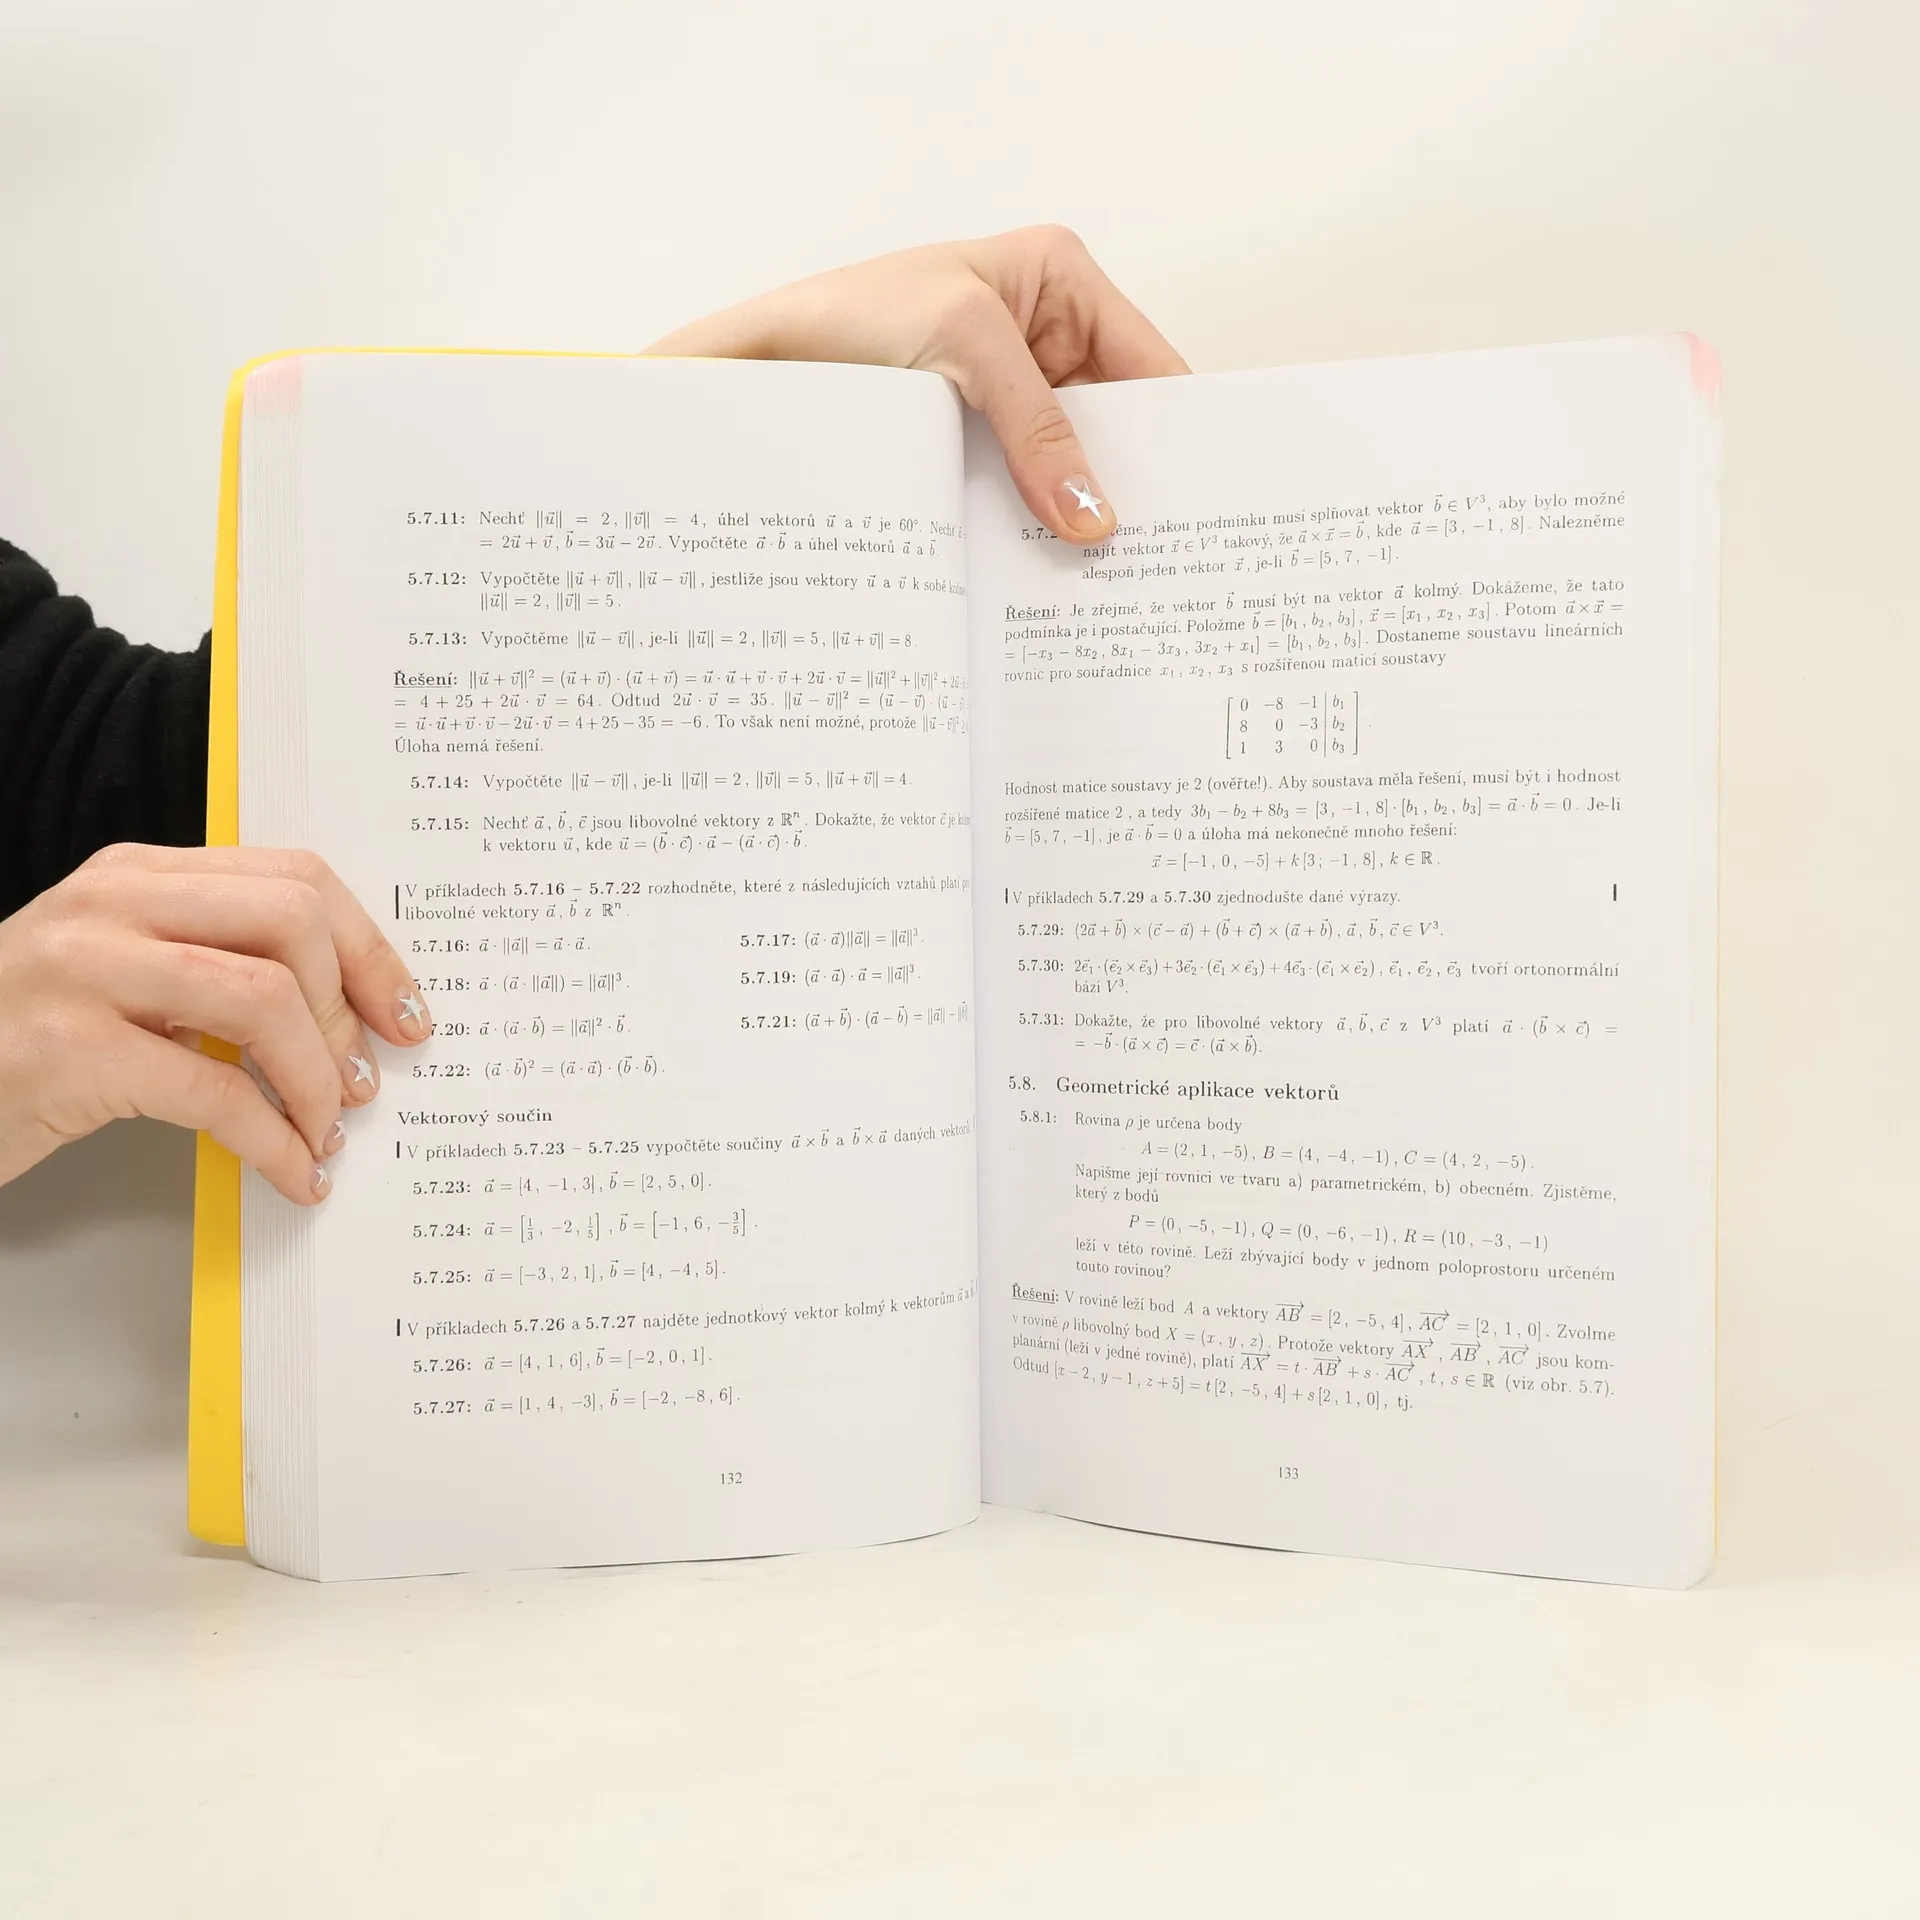 5.7.11: Nechť ||u⃗|| = 2, ||v⃗|| = 4, úhel vektorů u⃗ a v⃗ je 60°. Nechť
= 2u⃗ + v⃗, b⃗ = 3u⃗ − 2v⃗. Vypočtěte a⃗ · b⃗ a úhel vektorů a⃗ a b⃗.
5.7.12: Vypočtěte ||u⃗ + v⃗||, ||u⃗ − v⃗||, jestliže jsou vektory u⃗ a v⃗ k sobě
||u⃗|| = 2, ||v⃗|| = 5.
5.7.13: Vypočtěme ||u⃗ − v⃗||, je-li ||u⃗|| = 2, ||v⃗|| = 5, ||u⃗ + v⃗|| = 8.
Řešení: ||u⃗ + v⃗||² = (u⃗ + v⃗) · (u⃗ + v⃗) = u⃗ · u⃗ + v⃗ · v⃗ + 2u⃗ · v⃗ = ||u⃗||² + ||v⃗||² + 2u⃗ ·
= 4 + 25 + 2u⃗ · v⃗ = 64. Odtud 2u⃗ · v⃗ = 35. ||u⃗ − v⃗||² = (u⃗ − v⃗) · (u⃗ −
= u⃗ · u⃗ + v⃗ · v⃗ − 2u⃗ · v⃗ = 4 + 25 − 35 = −6. To však není možné, protože ||u⃗ − v⃗||²
Úloha nemá řešení.
5.7.14: Vypočtěte ||u⃗ − v⃗||, je-li ||u⃗|| = 2, ||v⃗|| = 5, ||u⃗ + v⃗|| = 4.
5.7.15: Nechť a⃗, b⃗, c⃗ jsou libovolné vektory z ℝⁿ. Dokažte, že vektor c⃗ je
k vektoru u⃗, kde u⃗ = (b⃗ · c⃗) · a⃗ − (a⃗ · c⃗) · b⃗.
V příkladech 5.7.16 – 5.7.22 rozhodněte, které z následujících vztahů platí
libovolné vektory a⃗, b⃗ z ℝⁿ.
5.7.16: a⃗ · ||a⃗|| = a⃗ · a⃗. 5.7.17: (a⃗ · a⃗)||a⃗|| = ||a⃗||³.
5.7.18: a⃗ · (a⃗ · ||a⃗||) = ||a⃗||³. 5.7.19: (a⃗ · a⃗) · a⃗ = ||a⃗||³.
7.20: a⃗ · (a⃗ · b⃗) = ||a⃗||² · b⃗. 5.7.21: (a⃗ + b⃗) · (a⃗ − b⃗) = ||a⃗|| − ||b⃗
5.7.22: (a⃗ · b⃗)² = (a⃗ · a⃗) · (b⃗ · b⃗).
Vektorový součin
V příkladech 5.7.23 – 5.7.25 vypočtěte součiny a⃗ × b⃗ a b⃗ × a⃗ daných vektorů.
5.7.23: a⃗ = [4, −1, 3], b⃗ = [2, 5, 0].
5.7.24: a⃗ = [1/3, −2, 1/5], b⃗ = [−1, 6, −3/5].
5.7.25: a⃗ = [−3, 2, 1], b⃗ = [4, −4, 5].
V příkladech 5.7.26 a 5.7.27 najděte jednotkový vektor kolmý k vektorům a⃗ a
5.7.26: a⃗ = [4, 1, 6], b⃗ = [−2, 0, 1].
5.7.27: a⃗ = [1, 4, −3], b⃗ = [−2, −8, 6].
132
5.7. těme, jakou podmínku musí splňovat vektor b⃗ ∈ V³, aby bylo možné
najít vektor x⃗ ∈ V³ takový, že a⃗ × x⃗ = b⃗, kde a⃗ = [3, −1, 8]. Nalezněme
alespoň jeden vektor x⃗, je-li b⃗ = [5, 7, −1].
Řešení: Je zřejmé, že vektor b⃗ musí být na vektor a⃗ kolmý. Dokážeme, že tato
podmínka je i postačující. Položme b⃗ = [b₁, b₂, b₃], x⃗ = [x₁, x₂, x₃]. Potom a⃗ × x⃗ =
= [−x₃ − 8x₂, 8x₁ − 3x₃, 3x₂ + x₁] = [b₁, b₂, b₃]. Dostaneme soustavu lineárních
rovnic pro souřadnice x₁, x₂, x₃ s rozšířenou maticí soustavy
0 −8 −1 | b₁
8 0 −3 | b₂
1 3 0 | b₃ .
Hodnost matice soustavy je 2 (ověřte!). Aby soustava měla řešení, musí být i hodnost
rozšířené matice 2, a tedy 3b₁ − b₂ + 8b₃ = [3, −1, 8] · [b₁, b₂, b₃] = a⃗ · b⃗ = 0. Je-li
b⃗ = [5, 7, −1], je a⃗ · b⃗ = 0 a úloha má nekonečně mnoho řešení:
x⃗ = [−1, 0, −5] + k[3; −1, 8], k ∈ ℝ.
V příkladech 5.7.29 a 5.7.30 zjednodušte dané výrazy.
5.7.29: (2a⃗ + b⃗) × (c⃗ − a⃗) + (b⃗ + c⃗) × (a⃗ + b⃗), a⃗, b⃗, c⃗ ∈ V³.
5.7.30: 2e⃗₁ · (e⃗₂ × e⃗₃) + 3e⃗₂ · (e⃗₁ × e⃗₃) + 4e⃗₃ · (e⃗₁ × e⃗₂), e⃗₁, e⃗₂, e⃗₃ tvoří ortonormální
bázi V³.
5.7.31: Dokažte, že pro libovolné vektory a⃗, b⃗, c⃗ z V³ platí a⃗ · (b⃗ × c⃗) =
= −b⃗ · (a⃗ × c⃗) = c⃗ · (a⃗ × b⃗).
5.8. Geometrické aplikace vektorů
5.8.1: Rovina ρ je určena body
A = (2, 1, −5), B = (4, −4, −1), C = (4, 2, −5).
Napišme její rovnici ve tvaru a) parametrickém, b) obecném. Zjistěme,
který z bodů
P = (0, −5, −1), Q = (0, −6, −1), R = (10, −3, −1)
leží v této rovině. Leží zbývající body v jednom poloprostoru určeném
touto rovinou?
Řešení: V rovině leží bod A a vektory AB⃗ = [2, −5, 4], AC⃗ = [2, 1, 0]. Zvolme
v rovině ρ libovolný bod X = (x, y, z). Protože vektory AX⃗, AB⃗, AC⃗ jsou kom-
planární (leží v jedné rovině), platí AX⃗ = t · AB⃗ + s · AC⃗, t, s ∈ ℝ (viz obr. 5.7).
Odtud [x − 2, y − 1, z + 5] = t[2, −5, 4] + s[2, 1, 0], tj.
133